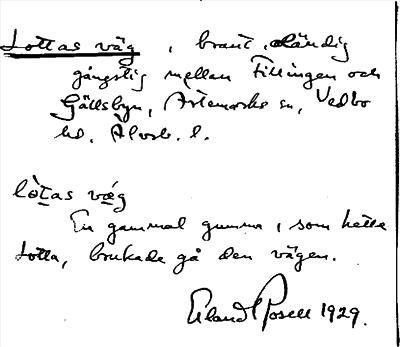 Lottas väg, brant, eländig
gångstig mellan Fillingen och
Gällsbyn, Ärtemarks sn, Vedbo
hd, Älvsb. l.
lò̀tas vǽg
En gammal gumma, som hette
Lotta, brukade gå den vägen.
Erland Rosell 1929.